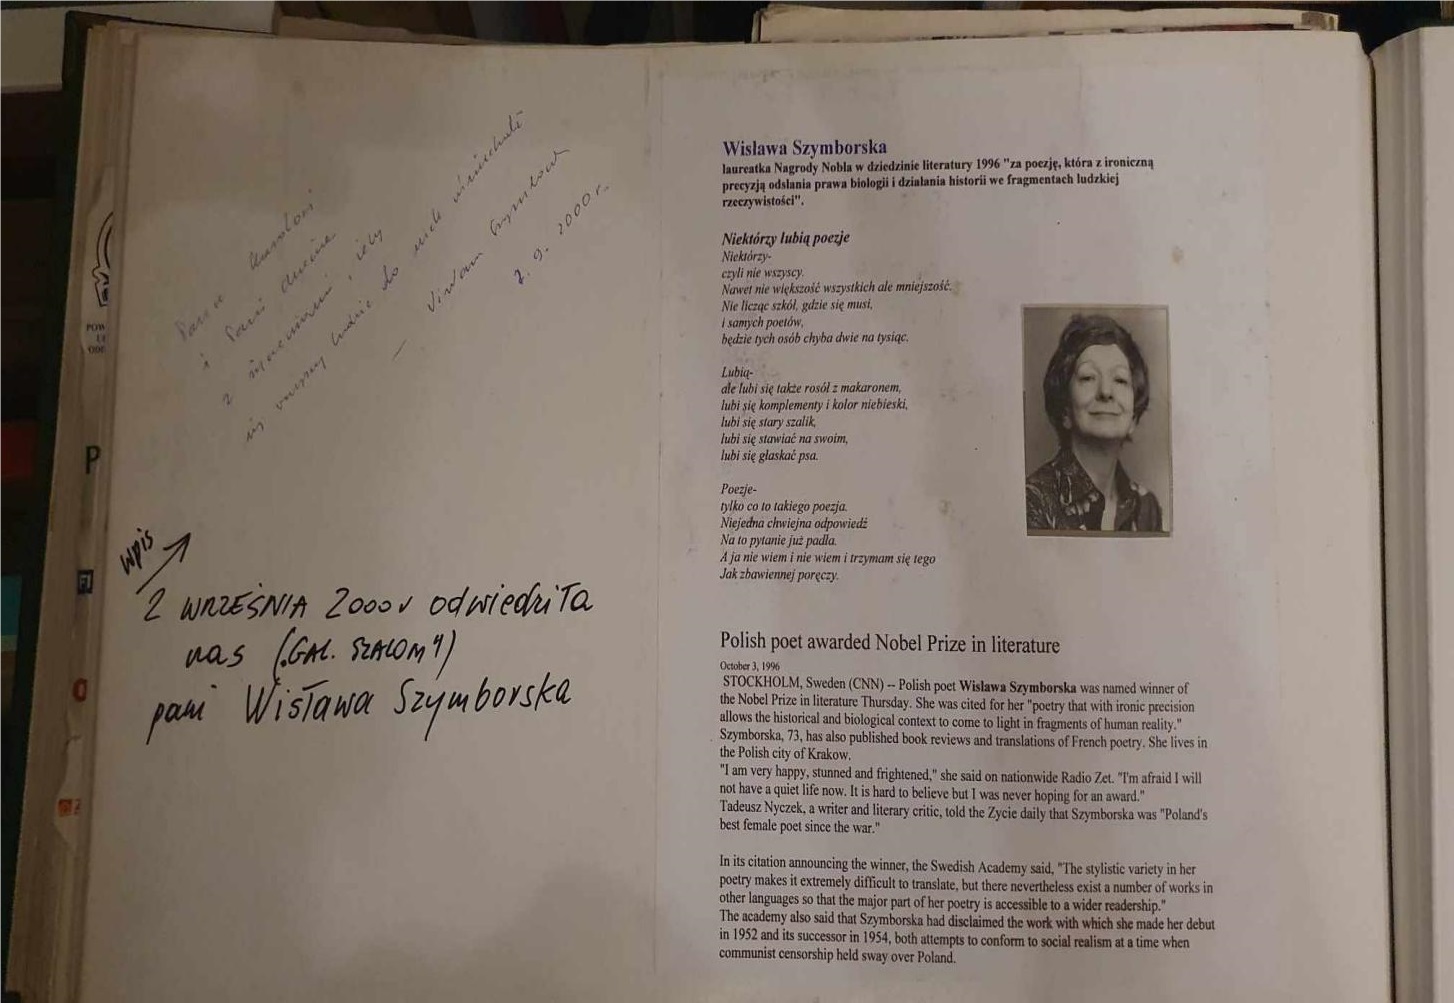 Panu Karolowi
i Pani
z
się wszyscy ludzie do nich uśmiechali
— Wisława Szymborska
2. 9. 2000 r.
wpis
2 WRZEŚNIA 2000r odwiedziła
nas („GAL. SZALOM")
pani Wisława Szymborska
P
Wisława Szymborska
laureatka Nagrody Nobla w dziedzinie literatury 1996 "za poezję, która z ironiczną
precyzją odsłania prawa biologii i działania historii we fragmentach ludzkiej
rzeczywistości".
Niektórzy lubią poezje
Niektórzy-
czyli nie wszyscy.
Nawet nie większość wszystkich ale mniejszość.
Nie licząc szkół, gdzie się musi,
i samych poetów,
będzie tych osób chyba dwie na tysiąc.
Lubią-
ale lubi się także rosół z makaronem,
lubi się komplementy i kolor niebieski,
lubi się stary szalik,
lubi się stawiać na swoim,
lubi się głaskać psa.
Poezje-
tylko co to takiego poezja.
Niejedna chwiejna odpowiedź
Na to pytanie już padła.
A ja nie wiem i nie wiem i trzymam się tego
Jak zbawiennej poręczy.
Polish poet awarded Nobel Prize in literature
October 3, 1996
STOCKHOLM, Sweden (CNN) -- Polish poet Wislawa Szymborska was named winner of
the Nobel Prize in literature Thursday. She was cited for her "poetry that with ironic precision
allows the historical and biological context to come to light in fragments of human reality."
Szymborska, 73, has also published book reviews and translations of French poetry. She lives in
the Polish city of Krakow.
"I am very happy, stunned and frightened," she said on nationwide Radio Zet. "I'm afraid I will
not have a quiet life now. It is hard to believe but I was never hoping for an award."
Tadeusz Nyczek, a writer and literary critic, told the Zycie daily that Szymborska was "Poland's
best female poet since the war."
In its citation announcing the winner, the Swedish Academy said, "The stylistic variety in her
poetry makes it extremely difficult to translate, but there nevertheless exist a number of works in
other languages so that the major part of her poetry is accessible to a wider readership."
The academy also said that Szymborska had disclaimed the work with which she made her debut
in 1952 and its successor in 1954, both attempts to conform to social realism at a time when
communist censorship held sway over Poland.